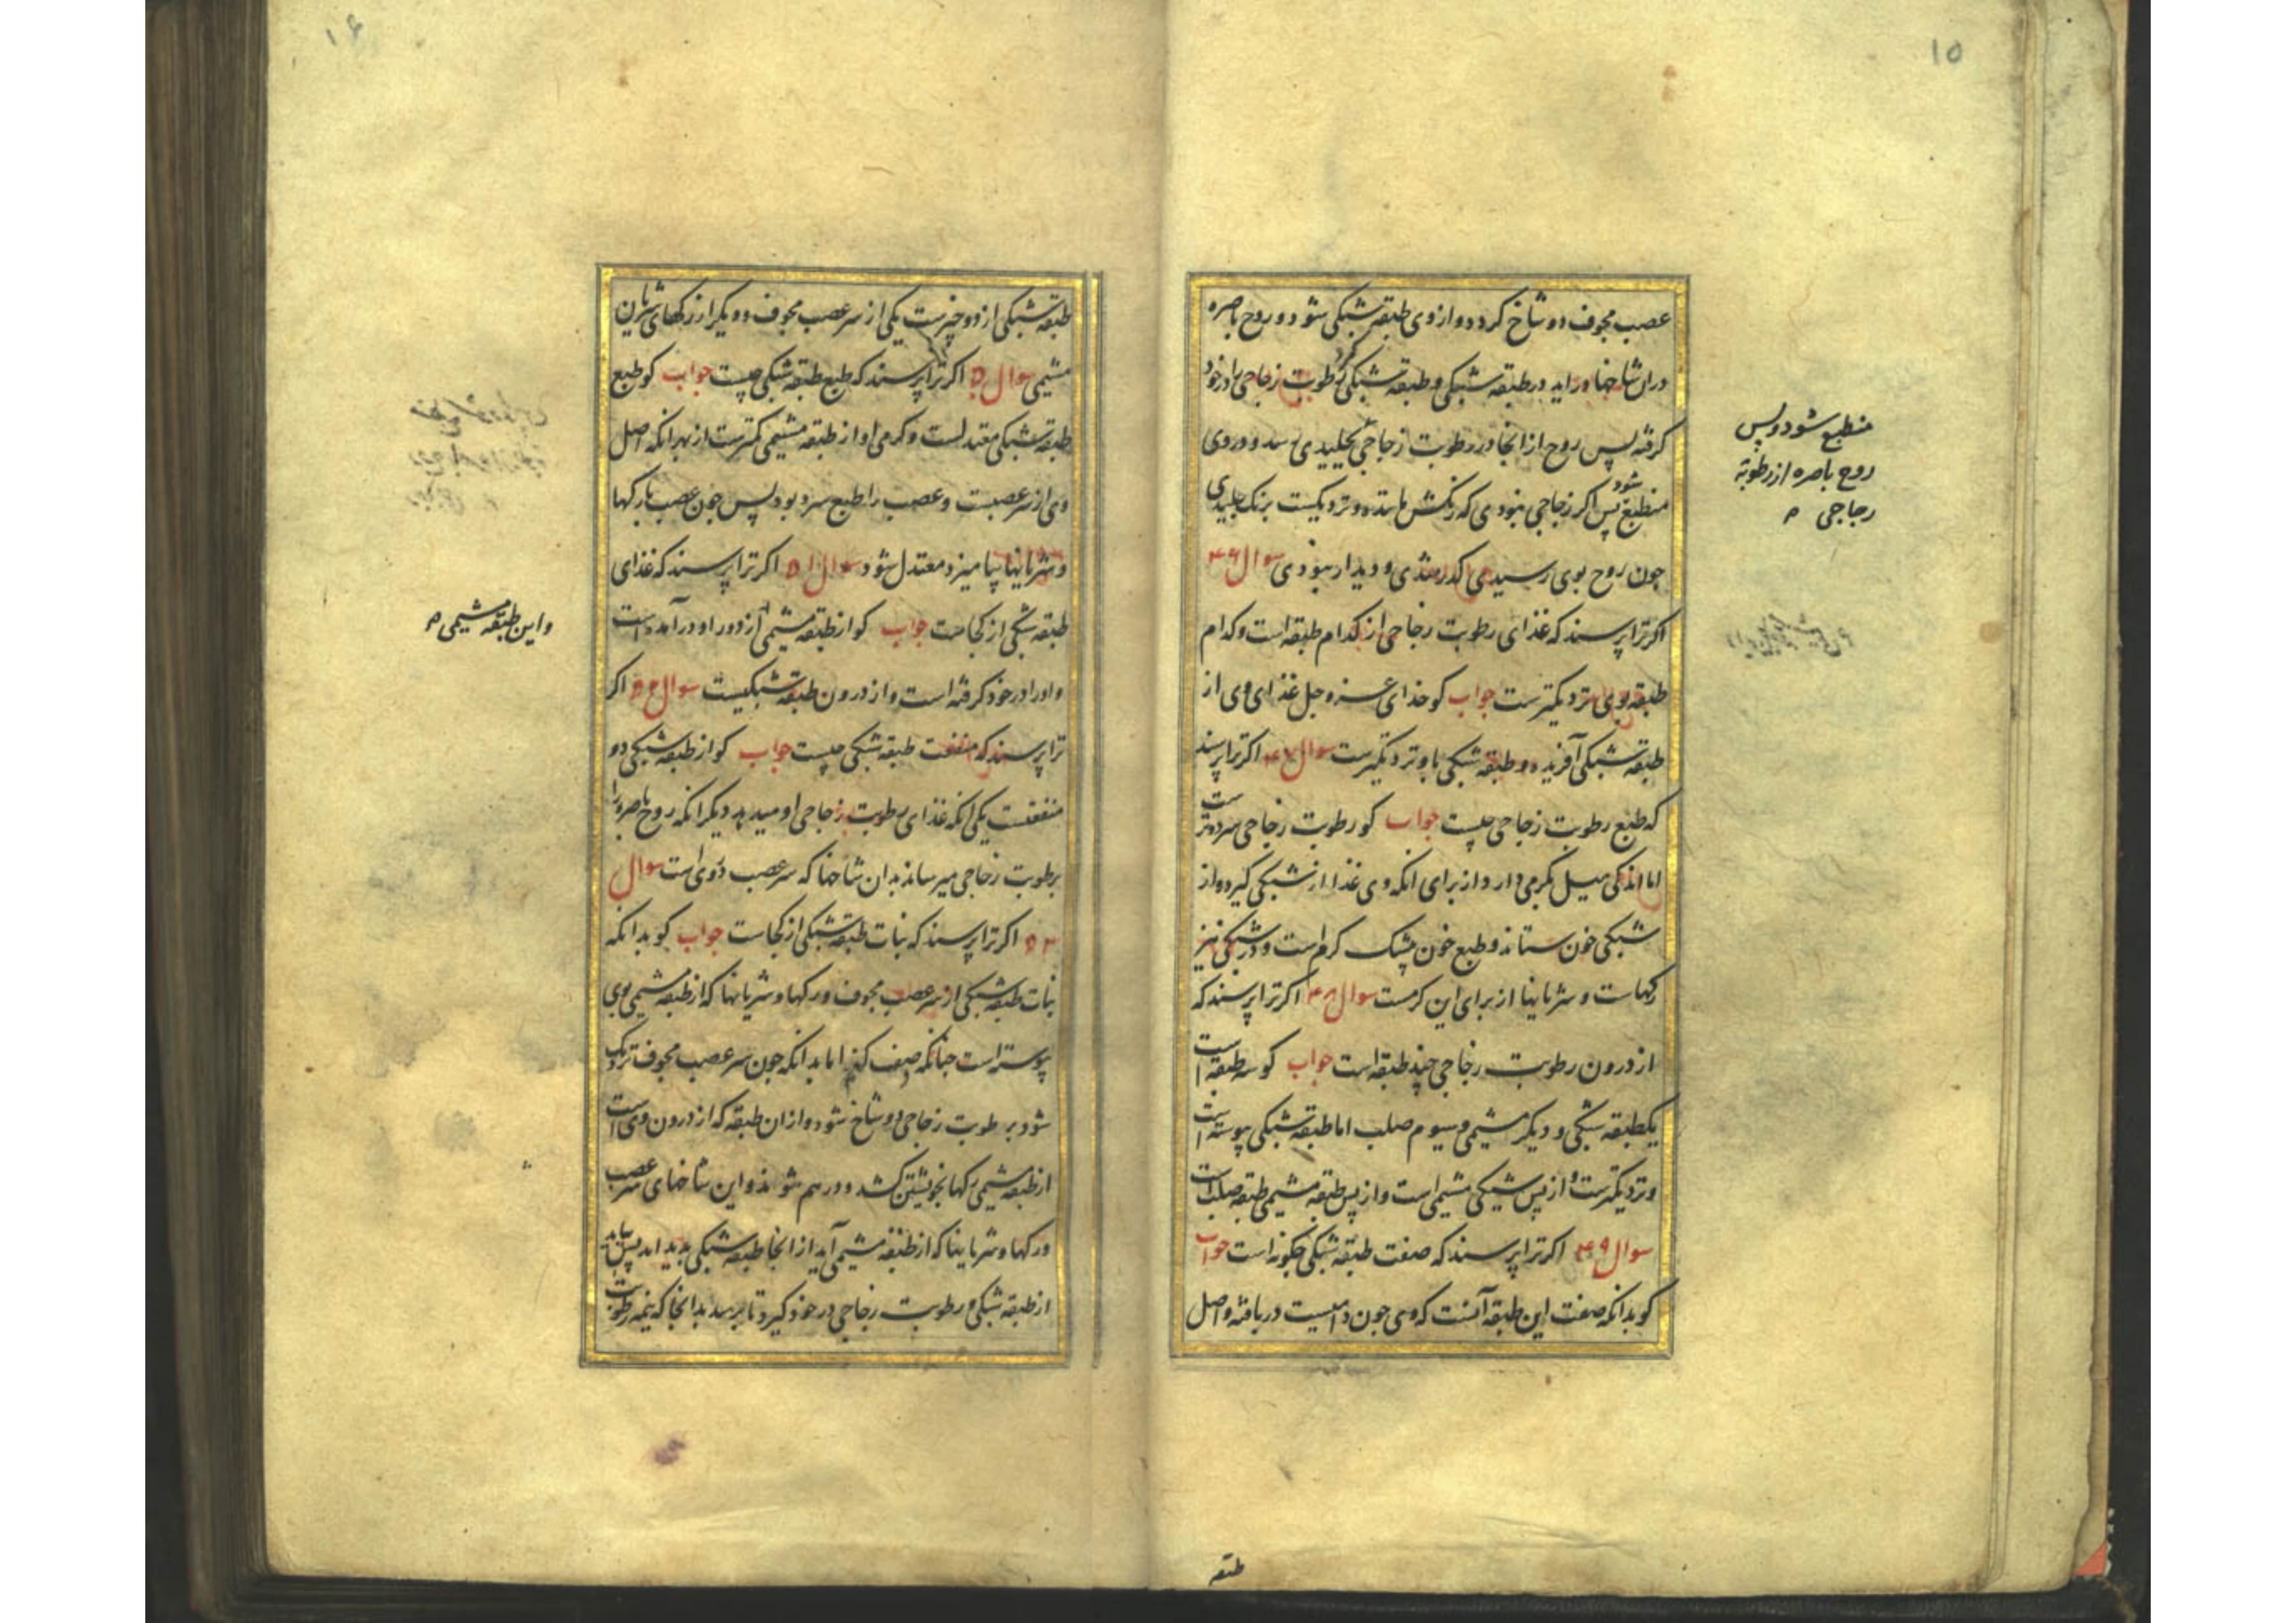 ۱۵
عصب مجوف دو شاخ کردد و از وی طبقه شبکی شود و روح باصره
دران شاخها در اید در طبقه شبکی و طبقه شبکی رطوبت زجاجی را در خود
کرفته پس روح از انجا در رطوبت زجاجی بجلیدی رسد و در وی
منطبع شود پس اکر زجاجی نبودی که رنکش ماننده و نزدیکست برنک جلیدی
چون روح بوی رسیدی مکدر شدی و دیدار نبودی سوال ۴۶
اکر ترا پرسند که غذای رطوبت زجاجی از کدام طبقه است و کدام
طبقه بوی نزدیکترست جواب کو خدای عزوجل غذای وی از
طبقه شبکی آفریده و طبقه شبکی باو نزدیکترست سوال ۴۷ اکر ترا پرسند
که طبع رطوبت زجاجی چیست جواب کو رطوبت زجاجی سرد و ترست
اما اندکی میل بکرمی دارد از برای انکه وی غذا از شبکی کیرد و از
شبکی خون ستاند و طبع خون بیشک کرم است و در شبکی نیز
رکهاست و شریانها از برای این کرمست سوال ۴۸ اکر ترا پرسند که
از درون رطوبت زجاجی چند طبقه است جواب کو سه طبقه است
یکطبقه شبکی و دیکر مشیمی و سیوم صلب اما طبقه شبکی پیوسته است
و نزدیکترست و از پس شبکی مشیمی است و از پس طبقه مشیمی طبقه صلب است
سوال ۴۹ اکر ترا پرسند که صفت طبقه شبکی چکونه است جواب
کو بدانکه صفت این طبقه آنست که وی چون دامیست دربافته و اصل
منطبع شود و پس
روح باصره از رطوبة
زجاجی
طبقه
۱۶
طبقه شبکی از دو چیزست یکی از سر عصب مجوف و دیکر از رکهای شریان
مشیمی سوال ۵۰ اکر ترا پرسند که طبع طبقه شبکی چیست جواب کو طبع
طبقه شبکی معتدلست و کرمی او از طبقه مشیمی کمترست از بهر انکه اصل
وی از سر عصبست و عصب را طبع سرد بود پس چون عصب با رکها
و شریانها بیامیزد معتدل شود سوال ۵۱ اکر ترا پرسند که غذای
طبقه شبکی از کجاست جواب کو از طبقه مشیمی از دور او در آمده است
و او را در خود کرفته است و از درون طبقه شبکیست سوال ۵۲ اکر
ترا پرسند که منفعت طبقه شبکی چیست جواب کو از طبقه شبکی دو
منفعتست یکی انکه غذای رطوبت زجاجی او میدهد دیکر انکه روح باصره را
برطوبت زجاجی میرساند بدان شاخها که سر عصب دوی است سوال
۵۳ اکر ترا پرسند که نبات طبقه شبکی از کجاست جواب کو بدانکه
نبات طبقه شبکی از سر عصب مجوف و رکها و شریانها که از طبقه مشیمی بوی
پیوسته است چنانکه صفت کند اما بدانکه چون سر عصب مجوف نزدیک
شود برطوبت زجاجی دو شاخ شود و از ان طبقه که از درون وی است
از طبقه مشیمی رکها بخویشتن کشد و در هم شوند و این شاخهای سر عصب
و رکها و شریانها که از طبقه مشیمی آید از انجا طبقه شبکی پدید اید پس بیاید
از طبقه شبکی و رطوبت زجاجی در خود کیرد تا برسد بدانجا که نیمه رطوبت
و این طبقه مشیمی